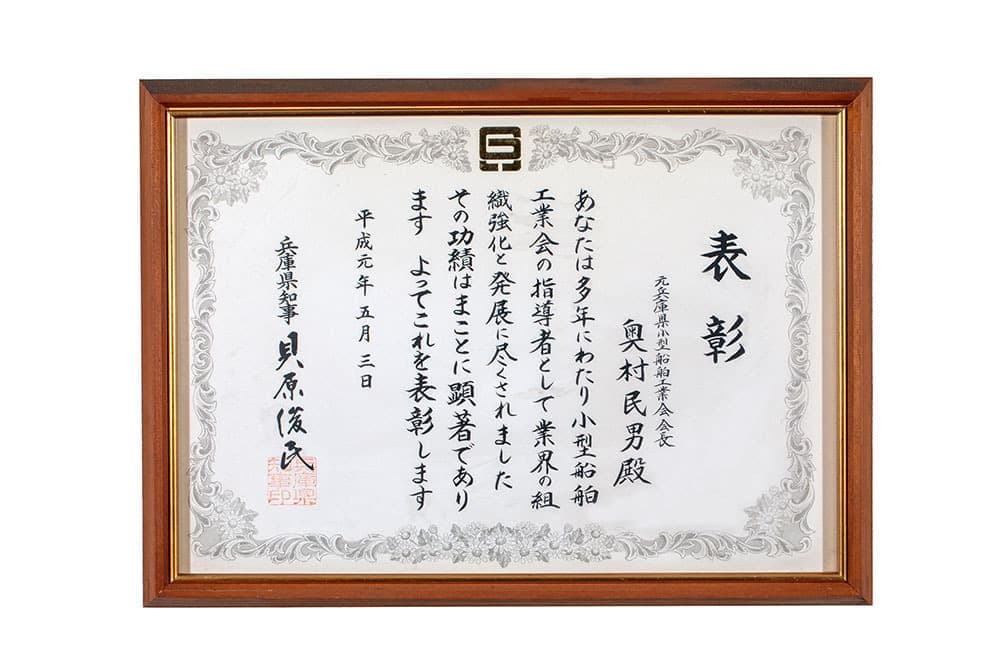 表彰
元兵庫県小型船舶工業会会長
奥村民男殿
あなたは多年にわたり小型船舶
工業会の指導者として業界の組
織強化と発展に尽くされました
その功績はまことに顕著であり
ます よってこれを表彰します
平成元年五月三日
兵庫県知事 貝原俊民
兵庫県
知事印